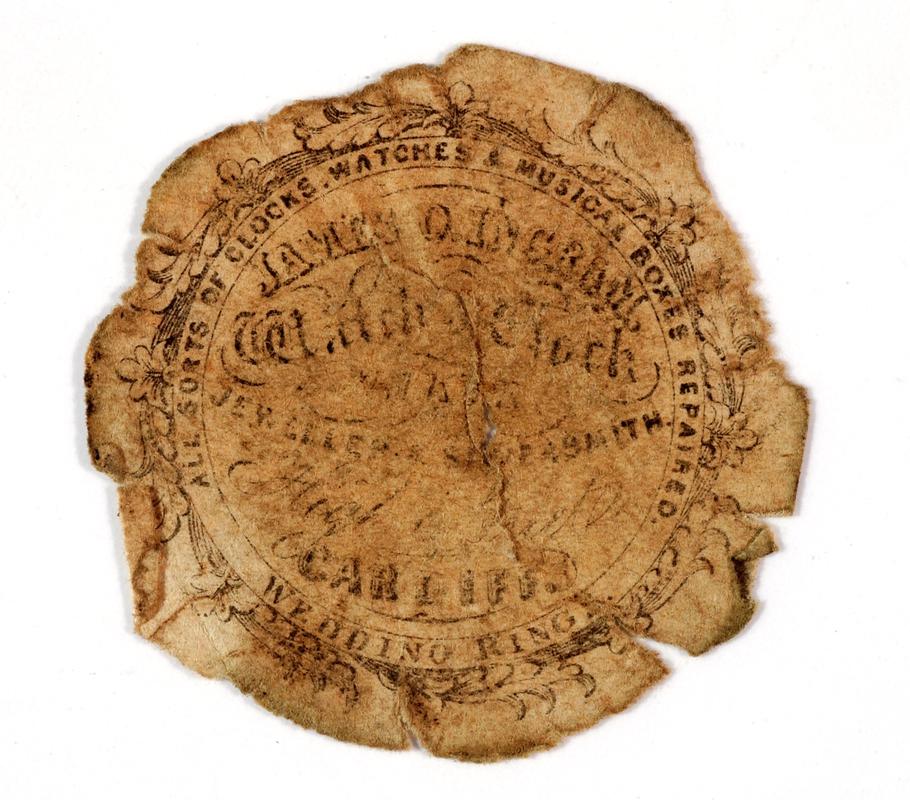 ALL SORTS OF CLOCKS, WATCHES & MUSICAL BOXES REPAIRED.
JAMES O. INGRAM,
Watch & Clock
JEWELLER & SILVERSMITH
CARDIFF.
WEDDING RING